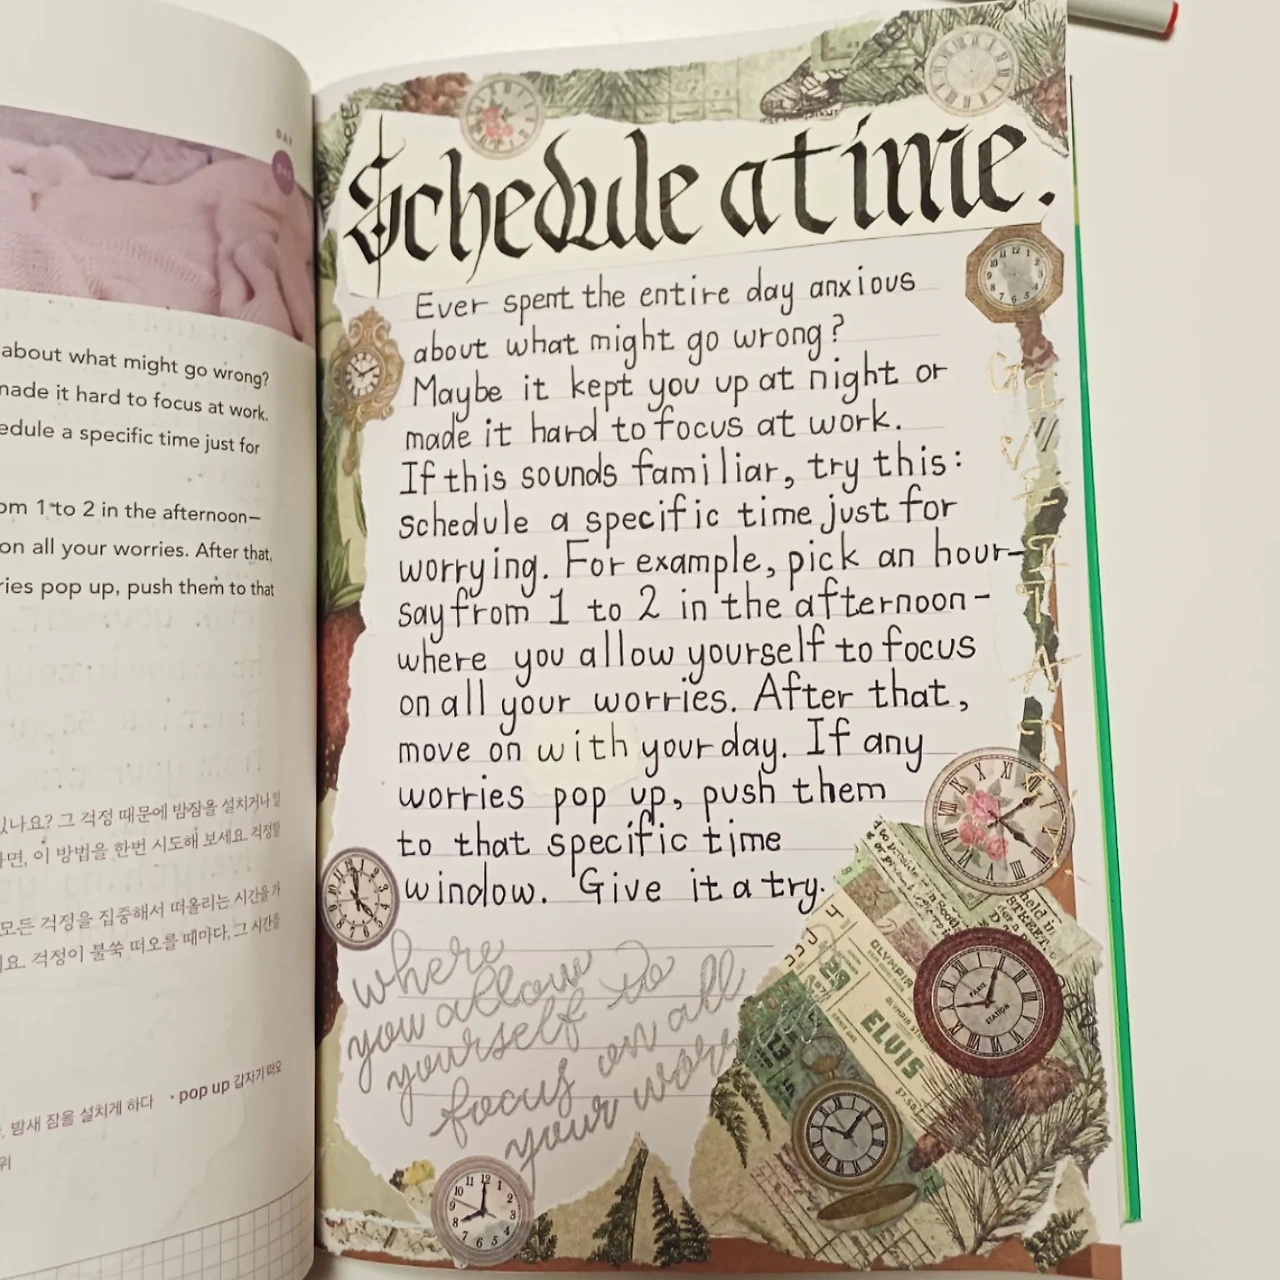 DAY
about what might go wrong?
made it hard to focus at work.
edule a specific time just for
om 1 to 2 in the afternoon—
on all your worries. After that,
ries pop up, push them to that
있나요? 그 걱정 때문에 밤잠을 설치거나 일
면, 이 방법을 한번 시도해 보세요. 걱정할
모든 걱정을 집중해서 떠올리는 시간을 가
요. 걱정이 불쑥 떠오를 때마다, 그 시간을
밤새 잠을 설치게 하다 • pop up 갑자기 떠오
위
Schedule a time.
Ever spent the entire day anxious
about what might go wrong?
Maybe it kept you up at night or
made it hard to focus at work.
If this sounds familiar, try this:
schedule a specific time just for
worrying. For example, pick an hour—
say from 1 to 2 in the afternoon-
where you allow yourself to focus
on all your worries. After that,
move on with your day. If any
worries pop up, push them
to that specific time
window. Give it a try.
where
you allow
yourself to
focus on all
your wor
OLYMPIA
ELVIS
$7.50
STREET.
PARIS
STATION